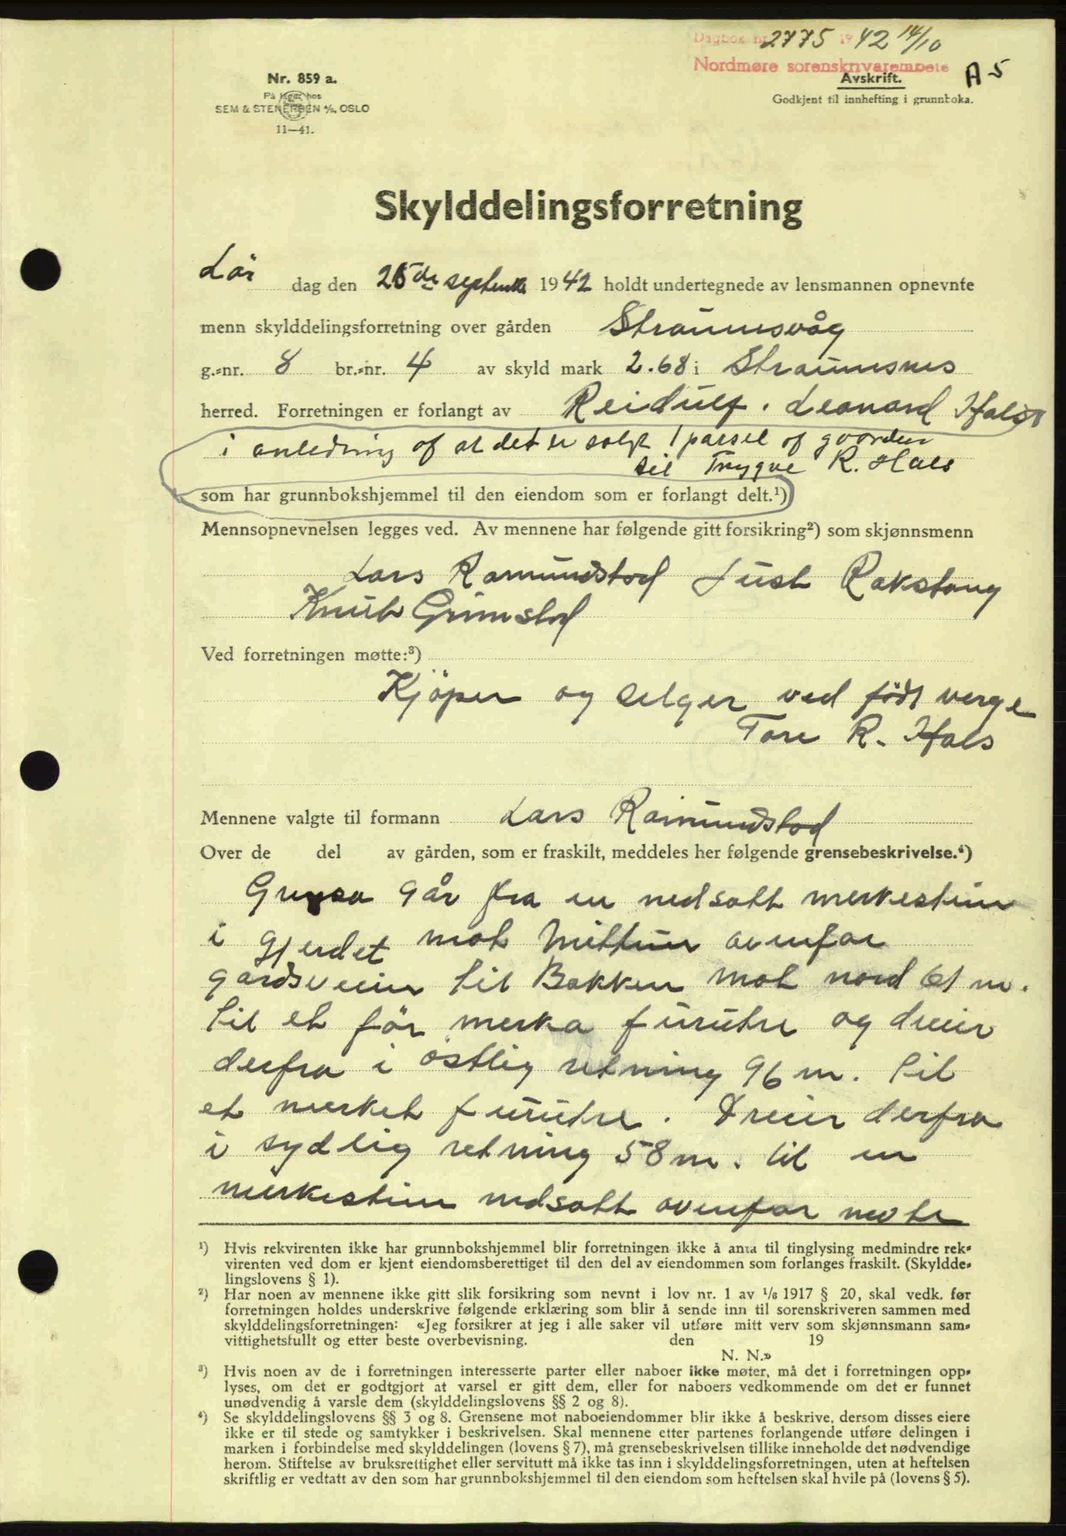 Dagbok nr. 2775 1942 14/10
Nordmøre sorenskriverembete
A 5
Nr. 859 a.
På lager hos
SEM & STENERSEN A/S, OSLO
11—41.
Avskrift.
Godkjent til innhefting i grunnboka.
Skylddelingsforretning
Lör dag den 25de septembr 1942 holdt undertegnede av lensmannen opnevnte
menn skylddelingsforretning over gården Straumsvåg
g.-nr. 8 br.-nr. 4 av skyld mark 2.68 i Straumsnes
herred. Forretningen er forlangt av Reidulf. Leonard Hals
i anledning af at det er solgt 1 parsel af gaarden
til Trygve R. Hals
som har grunnbokshjemmel til den eiendom som er forlangt delt.¹)
Mennsopnevnelsen legges ved. Av mennene har følgende gitt forsikring²) som skjønnsmenn
Lars Ramundstad Just Rakstang
Knut Grimstad
Ved forretningen møtte:³)
Kjöper og selger ved födt verge
Tore R. Hals
Mennene valgte til formann Lars Ramundstad
Over de del av gården, som er fraskilt, meddeles her følgende grensebeskrivelse.⁴)
Grensa går fra en nedsatt merkestein
i gjerdet mot Mittun ovenfor
gardsveien til Bakken mot nord 61 m.
til et för merka furutre og dreier
derfra i östlig retning 96 m. til
et merket furutre. Dreier derfra
i sydlig retning 58 m. til en
merkestein nedsatt ovenfor
¹) Hvis rekvirenten ikke har grunnbokshjemmel blir forretningen ikke å anta til tinglysing medmindre rek-
virenten ved dom er kjent eiendomsberettiget til den del av eiendommen som forlanges fraskilt. (Skyldde-
lingslovens § 1).
²) Har noen av mennene ikke gitt slik forsikring som nevnt i lov nr. 1 av 1/6 1917 § 20, skal vedk. før
forretningen holdes underskrive følgende erklæring som blir å sende inn til sorenskriveren sammen med
skylddelingsforretningen: «Jeg forsikrer at jeg i alle saker vil utføre mitt verv som skjønnsmann sam-
vittighetsfullt og etter beste overbevisning. den 19
N. N.»
³) Hvis noen av de i forretningen interesserte parter eller naboer ikke møter, må det i forretningen opp-
lyses, om det er godtgjort at varsel er gitt dem, eller for naboers vedkommende om det er funnet
unødvendig å varsle dem (skylddelingslovens §§ 2 og 8).
⁴) Se skylddelingslovens §§ 3 og 8. Grensene mot naboeiendommer blir ikke å beskrive, dersom disses eiere
ikke er til stede og samtykker i beskrivelsen. Skal mennene etter partenes forlangende utføre delingen i
marken i forbindelse med skylddelingen (lovens § 7), må grensebeskrivelsen tillike inneholde det nødvendige
herom. Stiftelse av bruksrettighet eller servitutt må ikke tas inn i skylddelingsforretningen, uten at heftelsen
skriftlig er vedtatt av den som har grunnbokshjemmel til den eiendom som heftelsen skal hvile på (lovens § 5).